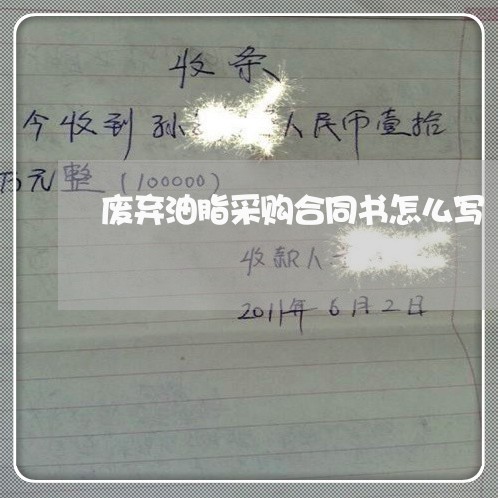 收条
今收到孙 人民币壹拾
万元整（100000）
废弃油脂采购合同书怎么写
收款人
2011年6月2日